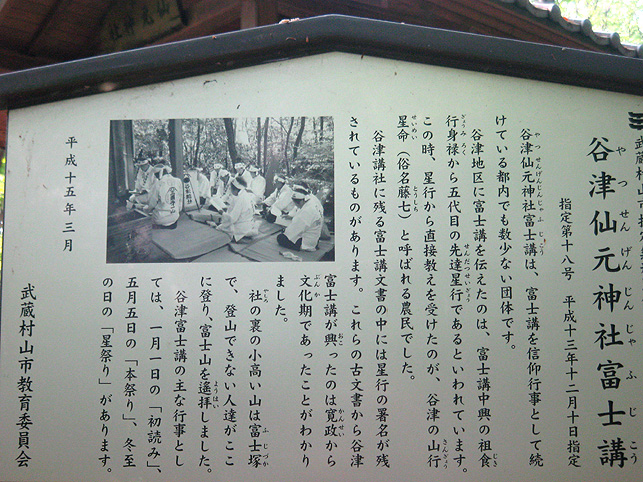 谷津仙元神社富士講
やつせんげんじんじゃふじこう
指定第十八号　平成十三年十二月十日指定
谷津仙元神社富士講は、富士講を信仰行事として続
やつせんげんじんじゃふじこう
けている都内でも数少ない団体です。
谷津地区に富士講を伝えたのは、富士講中興の祖食
じき
行身禄から五代目の先達星行であるといわれています。
ぎょうみろく　せんだつせいぎょう
この時、星行から直接教えを受けたのが、谷津の山行
さんぎょう
星命（俗名藤七）と呼ばれる農民でした。
せいめい　とうしち
谷津講社に残る富士講文書の中には星行の署名が残
されているものがあります。これらの古文書から谷津
富士講が興ったのは寛政から
おこ　かんせい
文化期であったことがわかり
ぶんか
ました。
社の裏の小高い山は富士塚
ふじづか
で、登山できない人達がここ
に登り、富士山を遙拝しました。
ようはい
谷津富士講の主な行事とし
ては、一月一日の「初読み」、
五月五日の「本祭り」、冬至
の日の「星祭り」があります。
平成十五年三月
武蔵村山市教育委員会